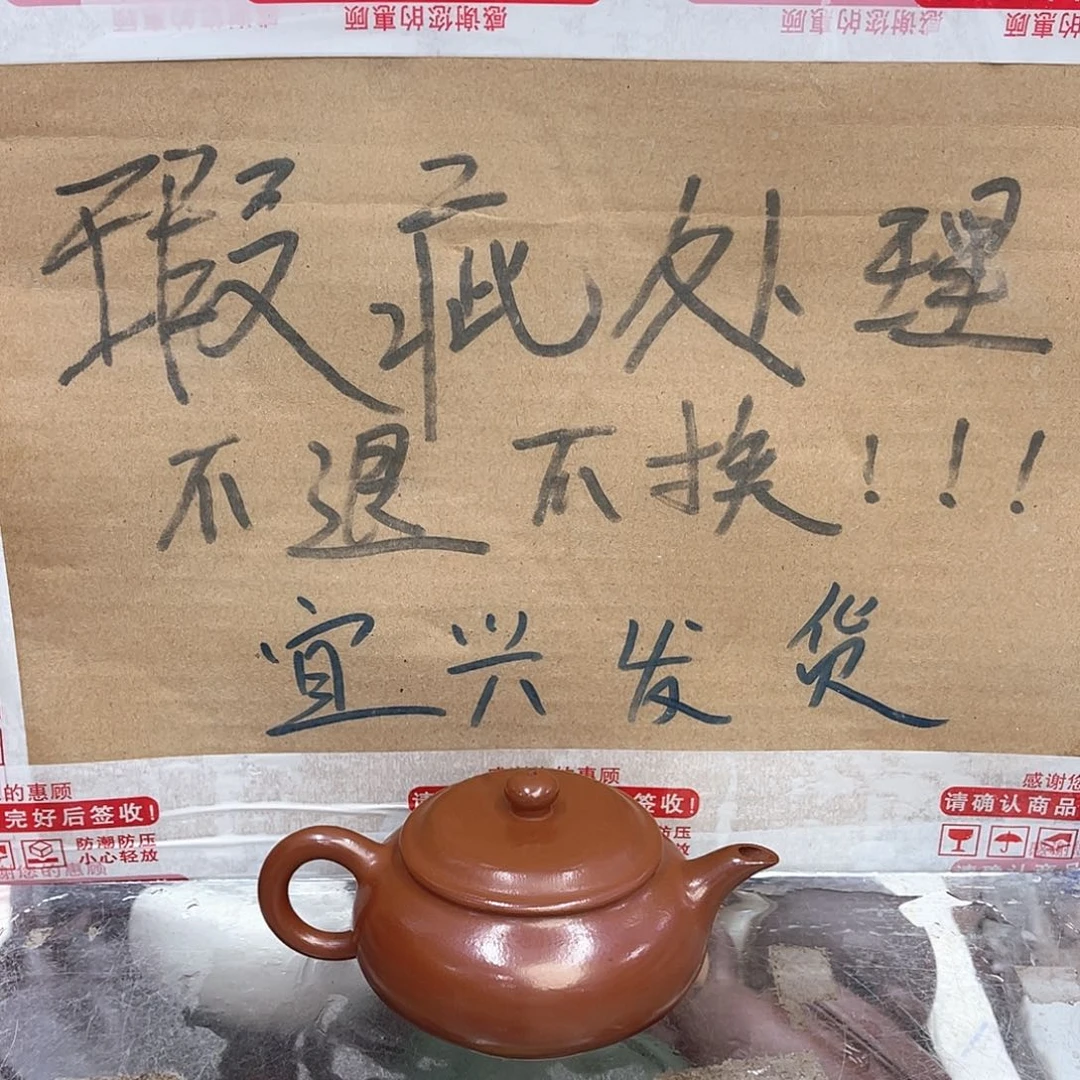 感谢您的惠顾 感谢您的惠顾
瑕疵处理
不退不换！！！
宜兴发货
的惠顾 惠顾 感谢您
完好后签收! 请 签收! 请确认商品
防潮防压 防压
小心轻放